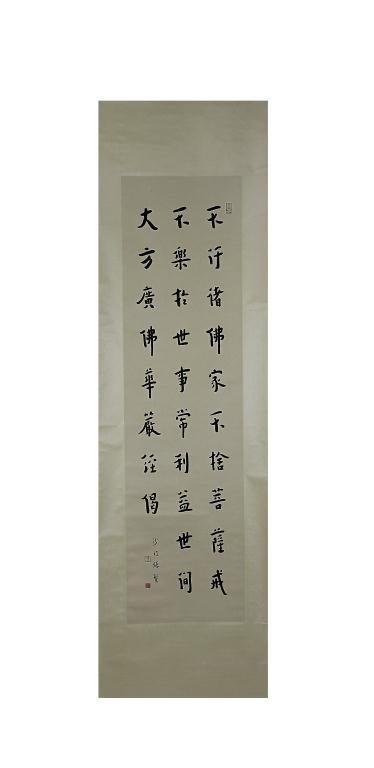 不汙諸佛家不捨菩薩戒
不樂於世事常利益世間
大方廣佛華嚴經偈
沙門勝髻